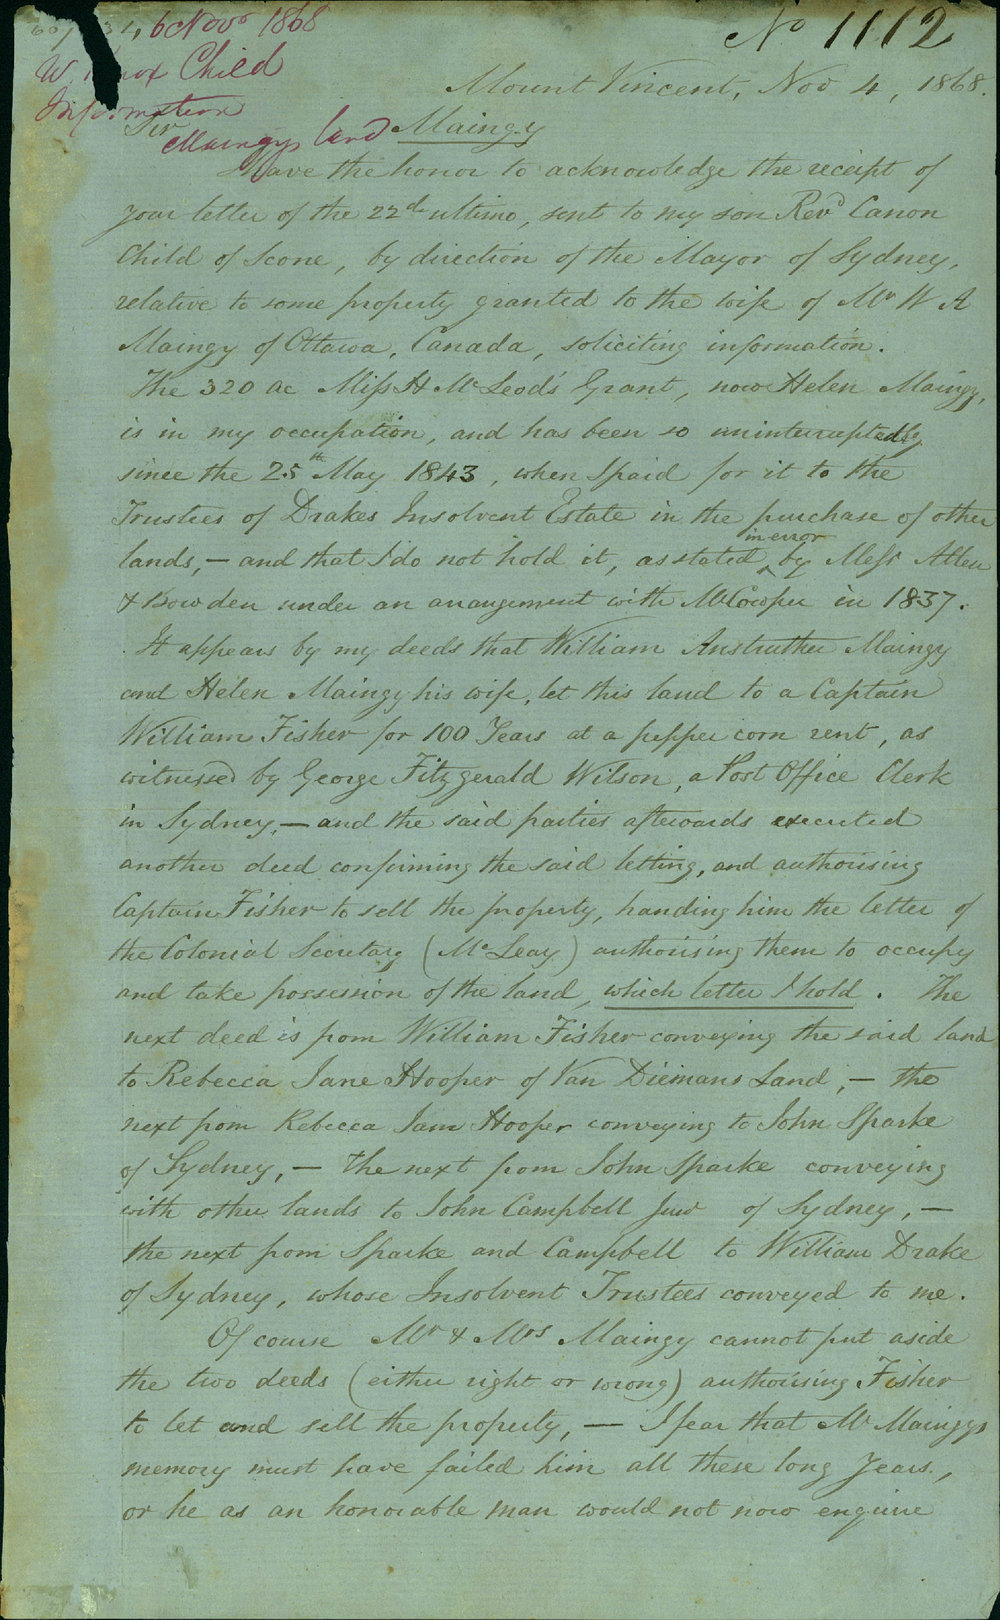 6 Nov 1868
No 1112
W. Child
Mount Vincent, Nov 4, 1868.
Information
Sir
Maingys land
Maingy
I have the honor to acknowledge the receipt of
your letter of the 22d ultimo, sent to my son Revd Canon
Child of Scone, by direction of the Mayor of Sydney,
relative to some property granted to the wife of Mr W A
Maingy of Ottawa, Canada, soliciting information.
The 320 ac Miss H McLeod's Grant, now Helen Maingy,
is in my occupation, and has been so uninterruptedly
since the 25th May 1843, when I paid for it to the
Trustees of Drakes Insolvent Estate in the purchase of other
lands, — and that I do not hold it, as stated in error by Messr Allen
& Bowden under an arrangement with Mr Cowper in 1837.
It appears by my deeds that William Anstruther Maingy
and Helen Maingy his wife, let this land to a Captain
William Fisher for 100 Years at a pepper corn rent, as
witnessed by George Fitzgerald Wilson, a Post Office Clerk
in Sydney, — and the said parties afterwards executed
another deed confirming the said letting, and authorising
Captain Fisher to sell the property, handing him the letter of
the Colonial Secretary (McLeay) authorising them to occupy
and take possession of the land, which letter I hold. The
next deed is from William Fisher conveying the said land
to Rebecca Jane Hooper of Van Diemans Land, — the
next from Rebecca Jane Hooper conveying to John Sparke
of Sydney, — the next from John Sparke conveying
with other lands to John Campbell Junr of Sydney, —
the next from Sparke and Campbell to William Drake
of Sydney, whose Insolvent Trustees conveyed to me.
Of course Mr & Mrs Maingy cannot put aside
the two deeds (either right or wrong) authorising Fisher
to let and sell the property, — I fear that Mr Maingys
memory must have failed him all these long years,
or he as an honorable man would not now enquire